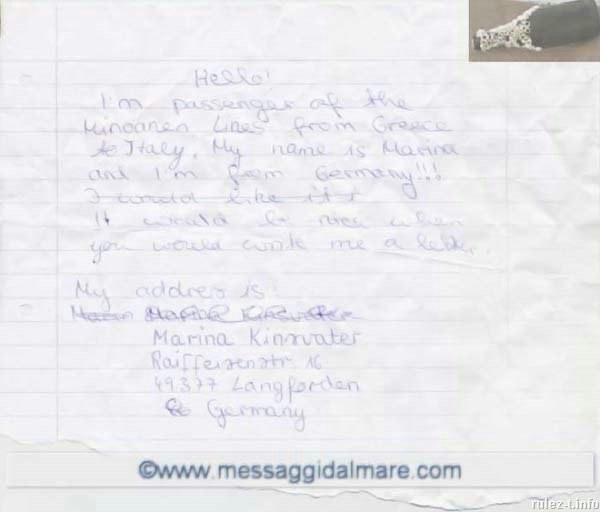 Hello!
I'm passenger of the
Minoanen Lines from Greece
to Italy. My name is Marina
and I'm from Germany!!!
I would like it
It would be nice when
you would write me a letter.
My address is:
Marina Kinxvater
Raiffeisenstr. 16
49377 Langförden
Germany
©www.messaggidalmare.com
rulez-t.info